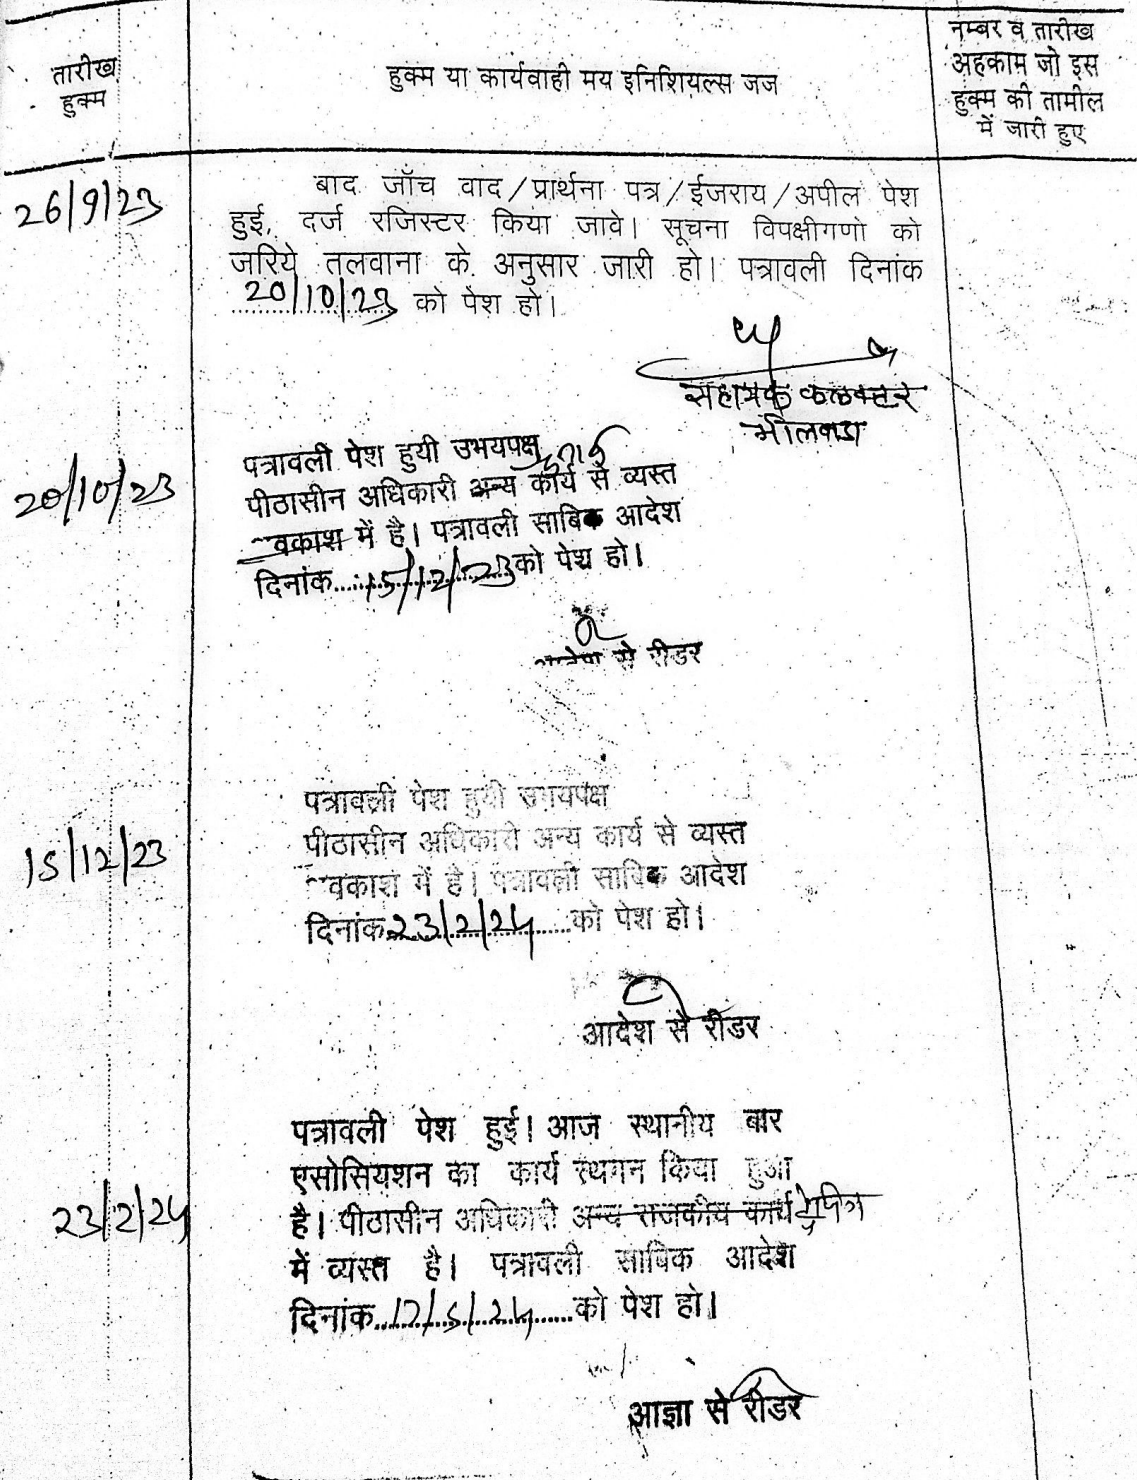 तारीख
हुक्म
हुक्म या कार्यवाही मय इनिशियल्स जज
नम्बर व तारीख
अहकाम जो इस
हुक्म की तामील
में जारी हुए
26/9/23
बाद जाँच वाद/प्रार्थना पत्र/ईजराय/अपील पेश
हुई, दर्ज रजिस्टर किया जावे। सूचना विपक्षीगणो को
जरिये तलवाना के अनुसार जारी हो। पत्रावली दिनांक
20/10/23 को पेश हो।
सहायक कलक्टर
भीलवाडा
20/10/23
पत्रावली पेश हुयी उभयपक्ष
पीठासीन अधिकारी अन्य कार्य से व्यस्त
वकाश में है। पत्रावली साबिक आदेश
दिनांक....15/12/23 को पेश हो।
आदेश से रीडर
15/12/23
पत्रावली पेश हुयी उभयपक्ष
पीठासीन अधिकारी अन्य कार्य से व्यस्त
वकाश में है। पत्रावली साबिक आदेश
दिनांक 23/2/24 को पेश हो।
आदेश से रीडर
23/2/24
पत्रावली पेश हुई। आज स्थानीय बार
एसोसियशन का कार्य स्थगन किया हुआ
है। पीठासीन अधिकारी अन्य राजकीय कार्य
में व्यस्त है। पत्रावली साबिक आदेश
दिनांक 17/5/24 को पेश हो।
आज्ञा से रीडर